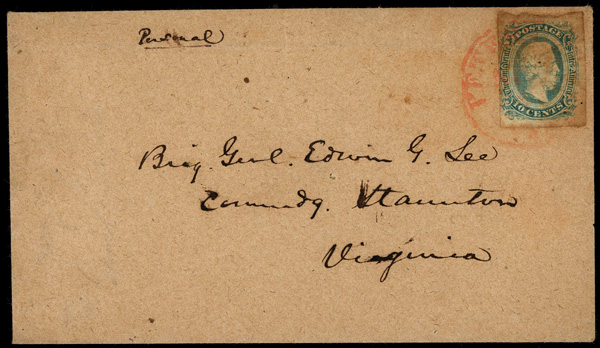 Personal
POSTAGE
The Confederate States of America
10 CENTS
Brig. Genl. Edwin G. Lee
Commdg. Staunton
Virginia